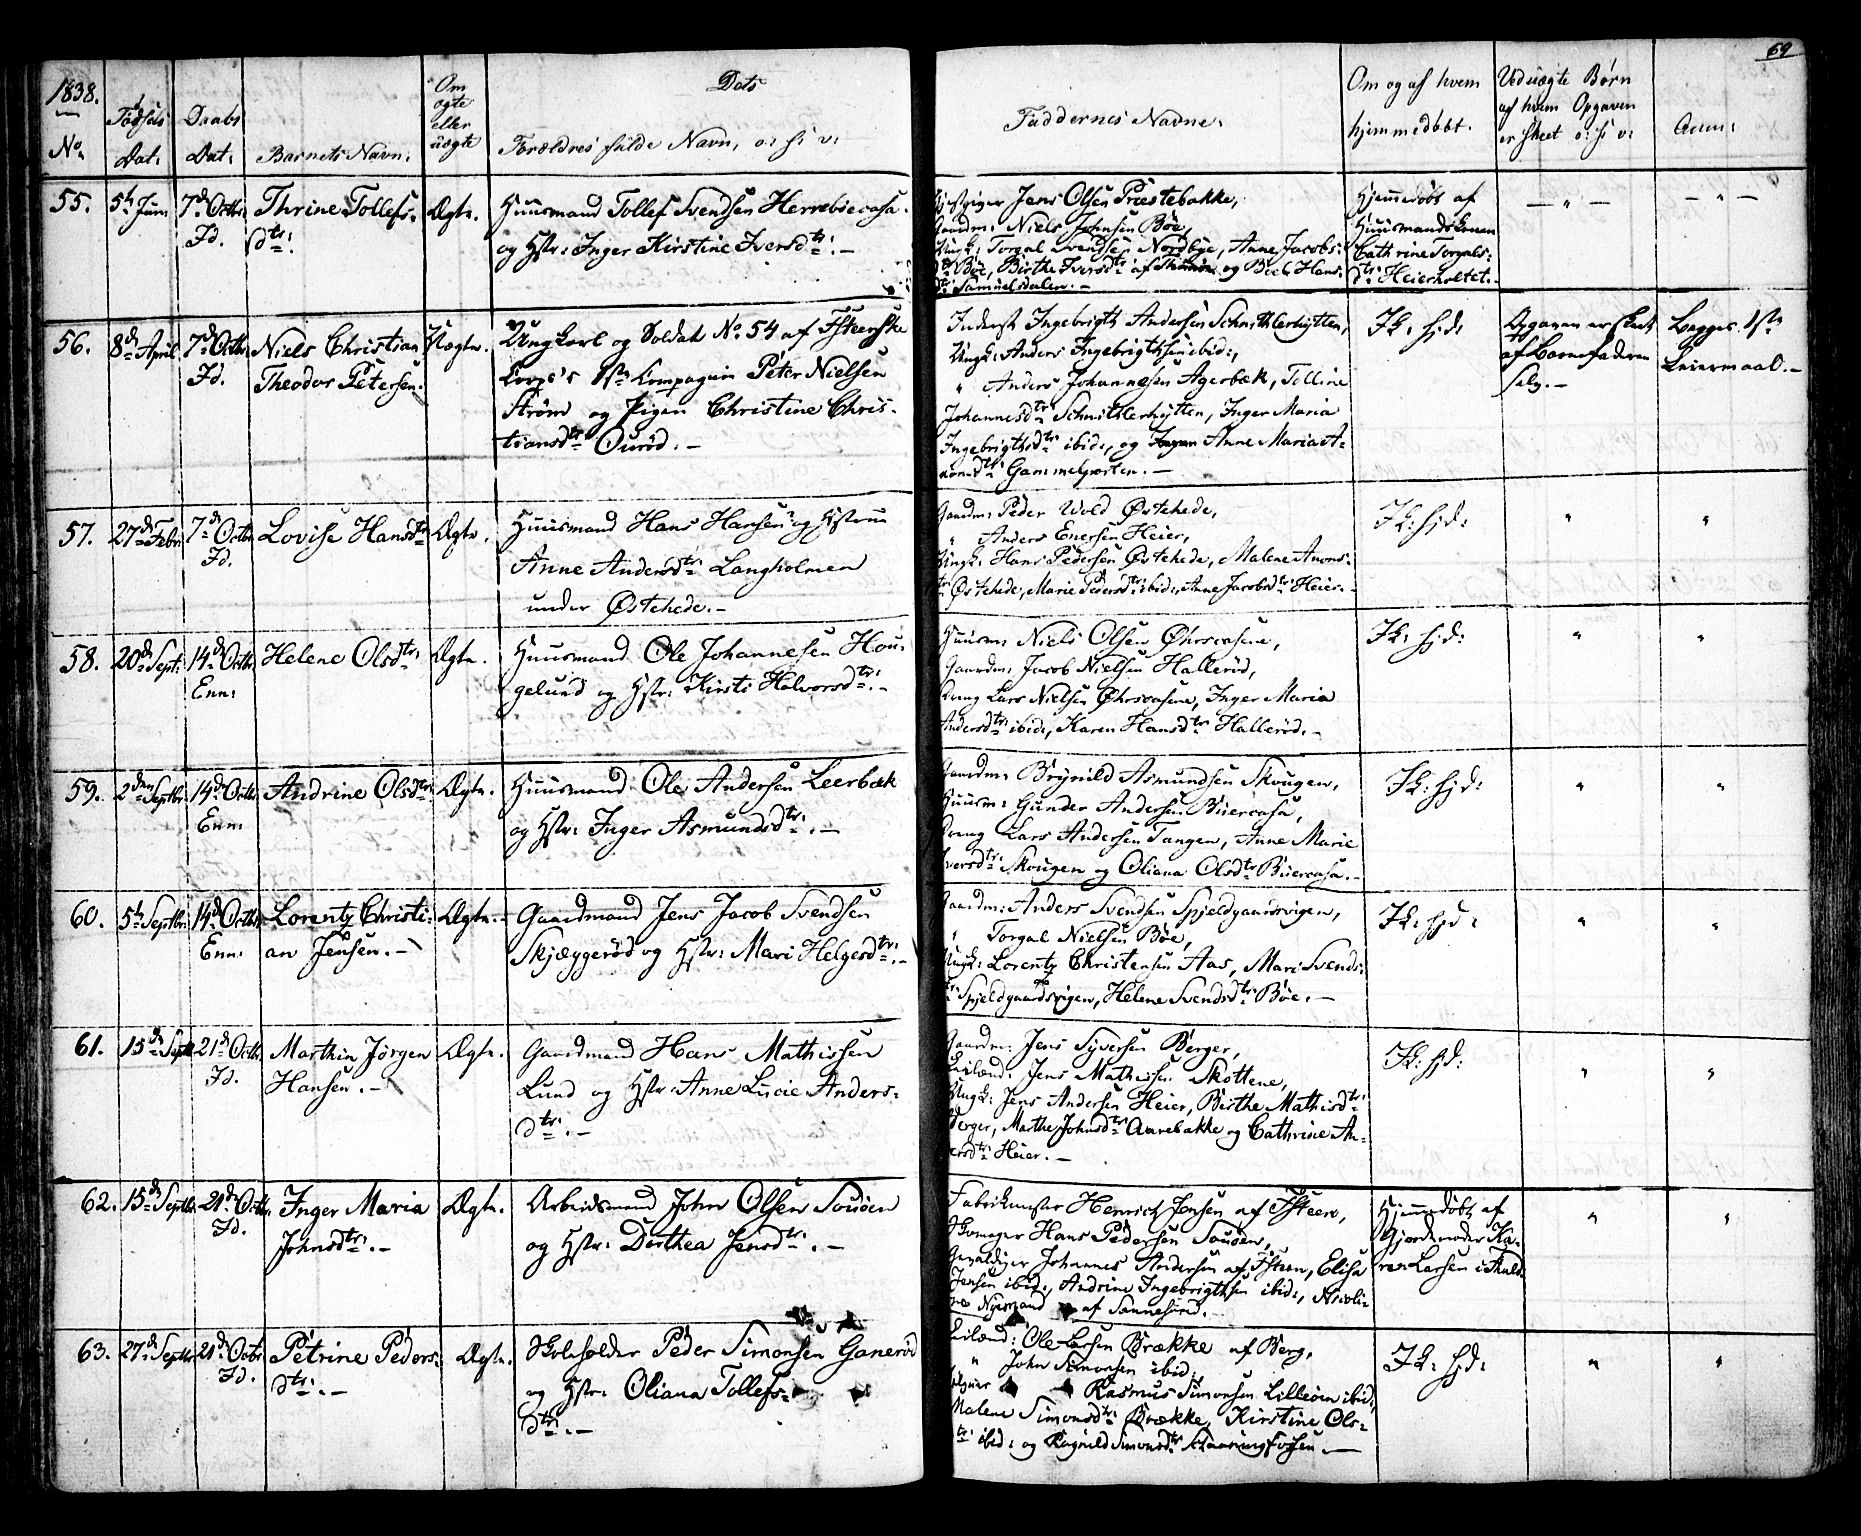 69
1838.
No.
Fødsels
Dat:
Daabs
Dat:
Barnets Navn:
Om
ægte
eller
uægte
Dets
Forældres fulde Navn, o: s: v:
Faddernes Navne.
Om og af hvem
hjemmedøbt.
Ved uægte Børn
af hvem Opgaven
er skeet o: s: v:
Anm:
55. 5t Juni 7d Octbr Thrine Tollefs- Ægte. Huusmand Tollef Svendsen Herrebøecasa.
Id. dtr: og Hstr: Inger Kirstine Iversdtr:. —
Jens Olsen Præstebakke,
Gaardm: Niels Johnsen Bøe,
Ungk: Torgal Svendsen Nordbye, Anne Jacobs-
dtr Bøe, Birthe Iversdtr af og Boel Hans-
dtr Samuelsdalen. —
Hjemmedøbt af
Huusmandskonen
Cathrine Torgals-
dtr Heierholtet. —
— " —
— " —
56. 8de April 7d Octbr Niels Christian Uægte. Ungkarl og Soldat No 54 af
Id. Theodor Petersen. Corps's 1ste Compagnie Peter Nielsen
Strøm og Pigen Christine Chris-
tiansdtr Ourød. —
Inderst Ingebrigth Andersen Schmithlerhytten,
Ungk: Anders Ingebrigthsen ibid:,
" Anders Johannesen Agerbæk, Tolline
Johannesdtr Schmithlerhytten, Inger Maria
Ingebrigthsdtr ibid:, og Anne Maria A-
Gammelgrøten. —
Ik: hjd:
Opgaven er skeet
af Barnefaderen
selv. —
Begges 1ste
Leiermaal. —
57. 27d Febr: 7d Octbr Lovise Hansdtr Ægte. Huusmand Hans Hansen og Hstrue
Id. Anne Andersdtr Langholmen
under Østehede. —
Gaardm: Peder Wold Østehede,
" Anders Enersen Heier,
Ungk: Hans Pedersen Østehede, Malene Amons-
dtr Østehede, Marie Pedersdtr ibid:, Anne Jacobsdtr Heier. —
Ik: hjd:
"
"
58. 20d Septr: 14d Octbr Helene Olsdtr: Ægte. Huusmand Ole Johannesen Hou-
Enn: gelund og Hstr: Kirsti Halvorsdtr:. —
Huusm: Niels Olsen Øhrscasene,
Gaardm: Jacob Nielsen Hallerød,
Dreng Lars Nielsen Øhrscasene, Inger Maria
Andersdtr: ibid:, Karen Hansdtr Hallerød. —
Ik: hjd:
"
"
59. 2den Septbr: 14d Octbr Andrine Olsdtr: Ægte. Huusmand Ole Andersen Leerbæk
Enn: og Hstr: Inger Asmundsdtr:. —
Gaardm: Brynild Asmundsen Skougen,
Huusm: Gunder Andersen Buercasa,
Dreng Lars Andersen Tangen, Anne Marie
Iversdtr: Skougen og Oliana Olsdtr Buercasa. —
Ik: hjd:
"
"
60. 5t Septbr: 14d Octbr Lorentz Christi- Ægte. Gaardmand Jens Jacob Svendsen
Enn: an Jensen. — Skjæggerød og Hstr: Mari Helgesdtr:. —
Gaardm: Anders Svendsen Spjeldgaardsvigen,
" Torgal Nielsen Bøe,
Ungk: Lorentz Christensen Aas, Mari Svends-
dtr: Spjeldgaardsvigen, Helene Svendsdtr: Bøe. —
Ik: hjd:
"
"
61. 15d Septbr 21d Octbr Marthin Jørgen Ægte. Gaardmand Hans Mathissen
Id. Hansen. — Lund og Hstr: Anne Lucie Anders-
dtr:. —
Gaardm: Jens Syversen Berger,
Leilænd: Jens Mathissen Skottene,
Ungk: Jens Andersen Heier, Birthe Mathisdtr:
Berger, Marthe Johnsdtr Aarebakke og Cathrine An-
dersdtr Heier. —
Ik: hjd:
"
"
62. 15d Septbr. 21d Octbr. Inger Maria Ægte. Arbeidsmand John Olsen Souøen
Id. Johnsdtr:. — og Hstr: Dorthea Jensdtr:. —
Henrich Jensen af
Skomager Hans Pedersen Souøen,
Johannes Andersen af Elisa
Jensen ibid:, Andrine Ingebrigthsen ibid:, Nicoli-
ne af Sannesund. —
Hjemmedøbt af
Gjordemoder Ka-
ren Larsen i
"
"
63. 27d Septbr 21d Octbr Petrine Peders- Ægte. Skoleholder Peder Simonsen Ganerød
Id. dtr:. — og Hstr: Oliana Tollefs-
dtr:. —
Leilænd: Ole Larsen Brække af Berg,
" John Simonsen ibid,
Rasmus Simonsen Lilleøen ibid:,
Malene Simonsdtr: Brække, Kirstine Ols-
dtr: ibid: og Ragnild Simonsdtr —
Ik: hjd:
"
"